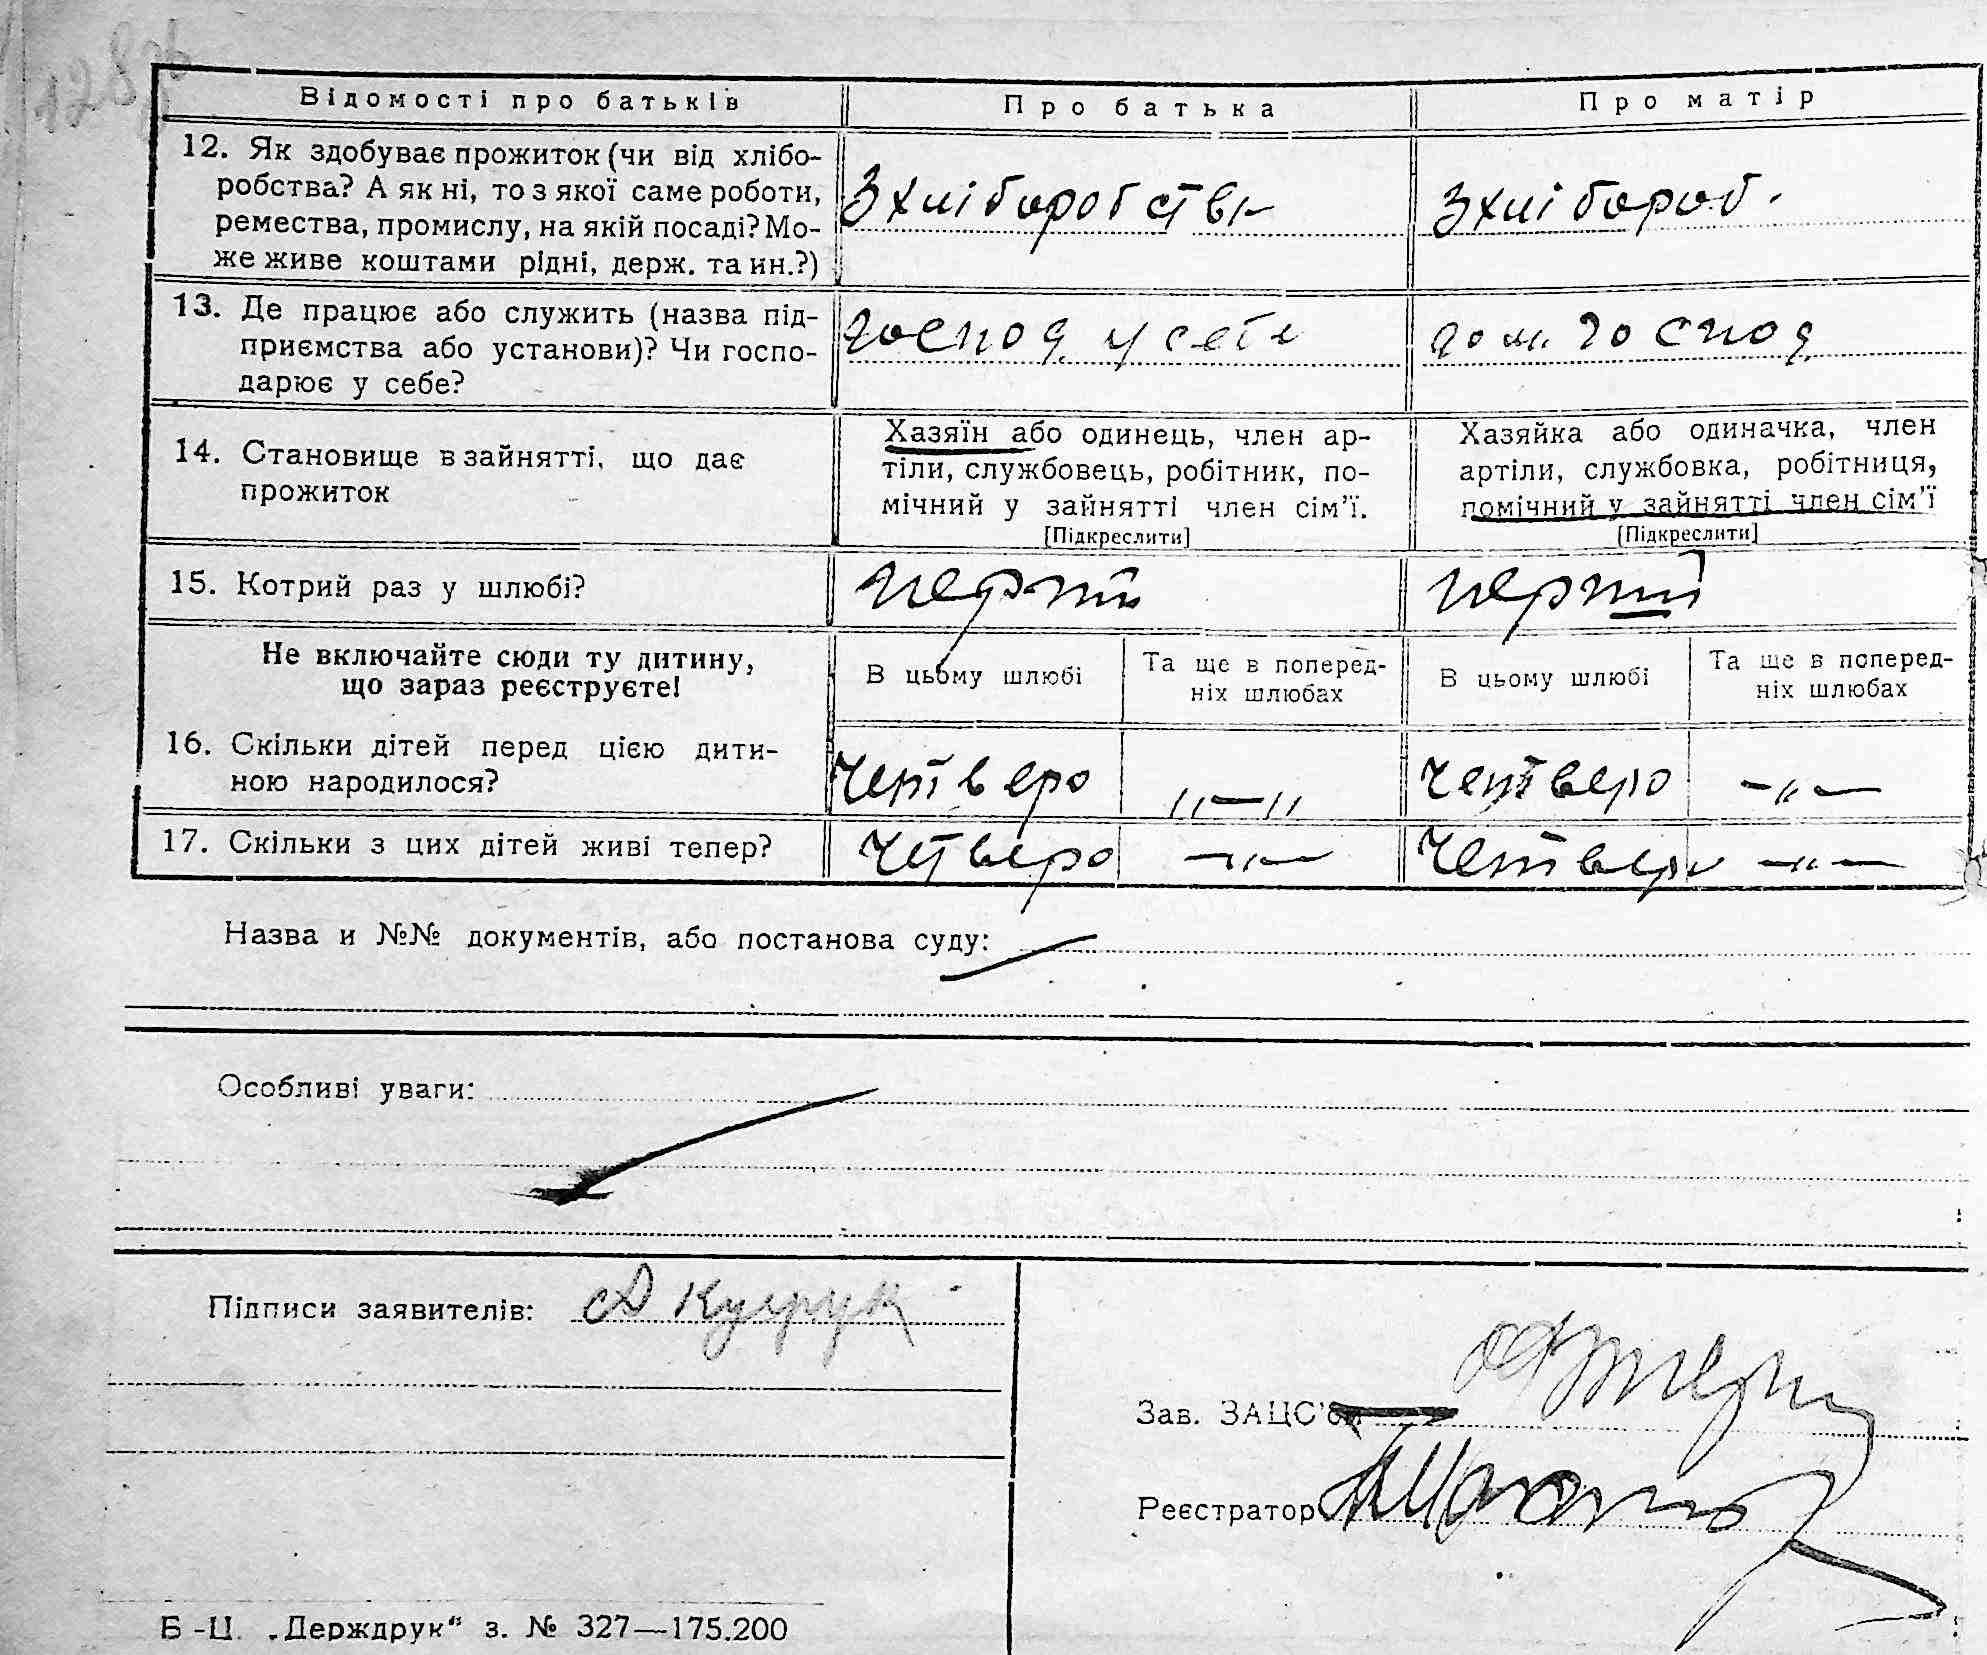 Відомості про батьків Про батька Про матір
12. Як здобуває прожиток (чи від хлібо-
робства? А як ні, то з якої саме роботи,
ремества, промислу, на якій посаді? Мо-
же живе коштами рідні, держ. та ин.?)
З хліборобства
З хлібороб.
13. Де працює або служить (назва під-
приємства або установи)? Чи госпо-
дарює у себе?
господ. у себе
дом. господ.
14. Становище в зайнятті, що дає
прожиток
Хазяїн або одинець, член ар-
тіли, службовець, робітник, по-
мічний у зайнятті член сім’ї.
[Підкреслити]
Хазяйка або одиначка, член
артіли, службовка, робітниця,
помічний у зайнятті член сім’ї
[Підкреслити]
15. Котрий раз у шлюбі?
перший
перший
Не включайте сюди ту дитину,
що зараз реєструєте!
В цьому шлюбі
Та ще в поперед-
ніх шлюбах
В цьому шлюбі
Та ще в поперед-
ніх шлюбах
16. Скільки дітей перед цією дити-
ною народилося?
Четверо „—„ Четверо —„—
17. Скільки з цих дітей живі тепер?
Четверо —„— Четверо —„—
Назва и №№ документів, або постанова суду:
Особливі уваги:
Підписи заявителів:
Зав. ЗАЦС’ом
Реєстратор
Б-Ц. „Держдрук“ з. № 327—175.200